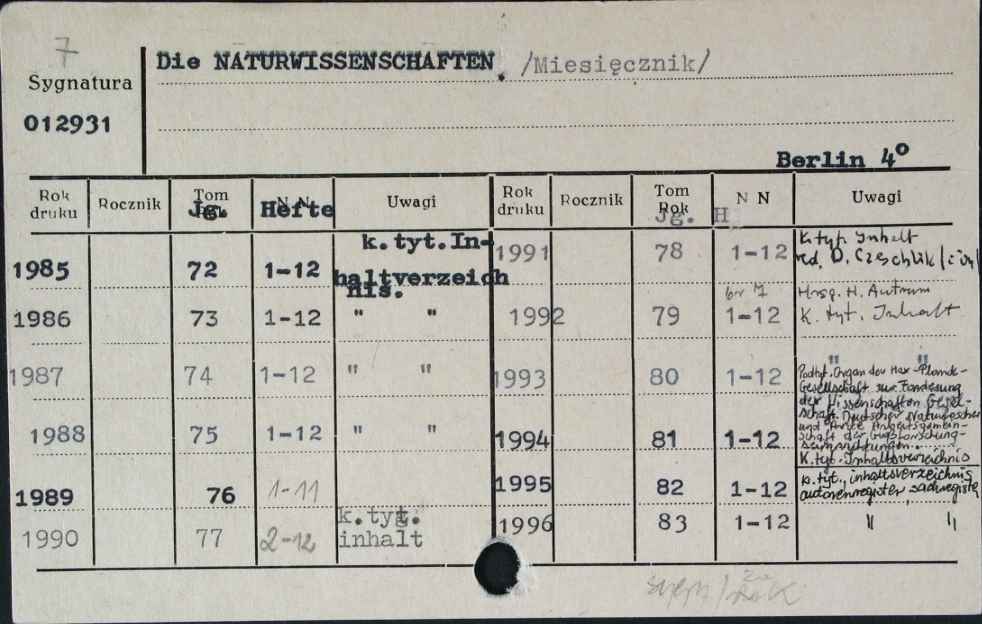 7
Die NATURWISSENSCHAFTEN. /Miesięcznik/
Sygnatura
012931
Berlin 4°
Rok druku Rocznik Tom Jg. N N Hefte Uwagi Rok druku Rocznik Tom Rok Jg. N N H Uwagi
1985 72 1-12 k.tyt.In-
haltverzeich
nis.
1986 73 1-12 " "
1987 74 1-12 " "
1988 75 1-12 " "
1989 76 1-11
1990 77 2-12 k.tyt.
inhalt
1991 78 1-12 K.tyt. Inhalt
red. D. Czeschlik
1992 79 br 7 1-12 Hrsg. H. Autrum
K. tyt. Inhalt
1993 80 1-12 " "
Podtyt. Organ der Max-Planck-
Gesellschaft zur Förderung
der Wissenschaften Gesel-
schaft Deutscher Naturforscher
und Ärzte Arbeitsgemein-
schaft der Großforschung-
seinrichtungen
1994 81 1-12 K.tyt. Inhaltsverzeichnis
1995 82 1-12 k.tyt., inhaltsverzeichnis,
autorenregister, sachregister
1996 83 1-12 " "